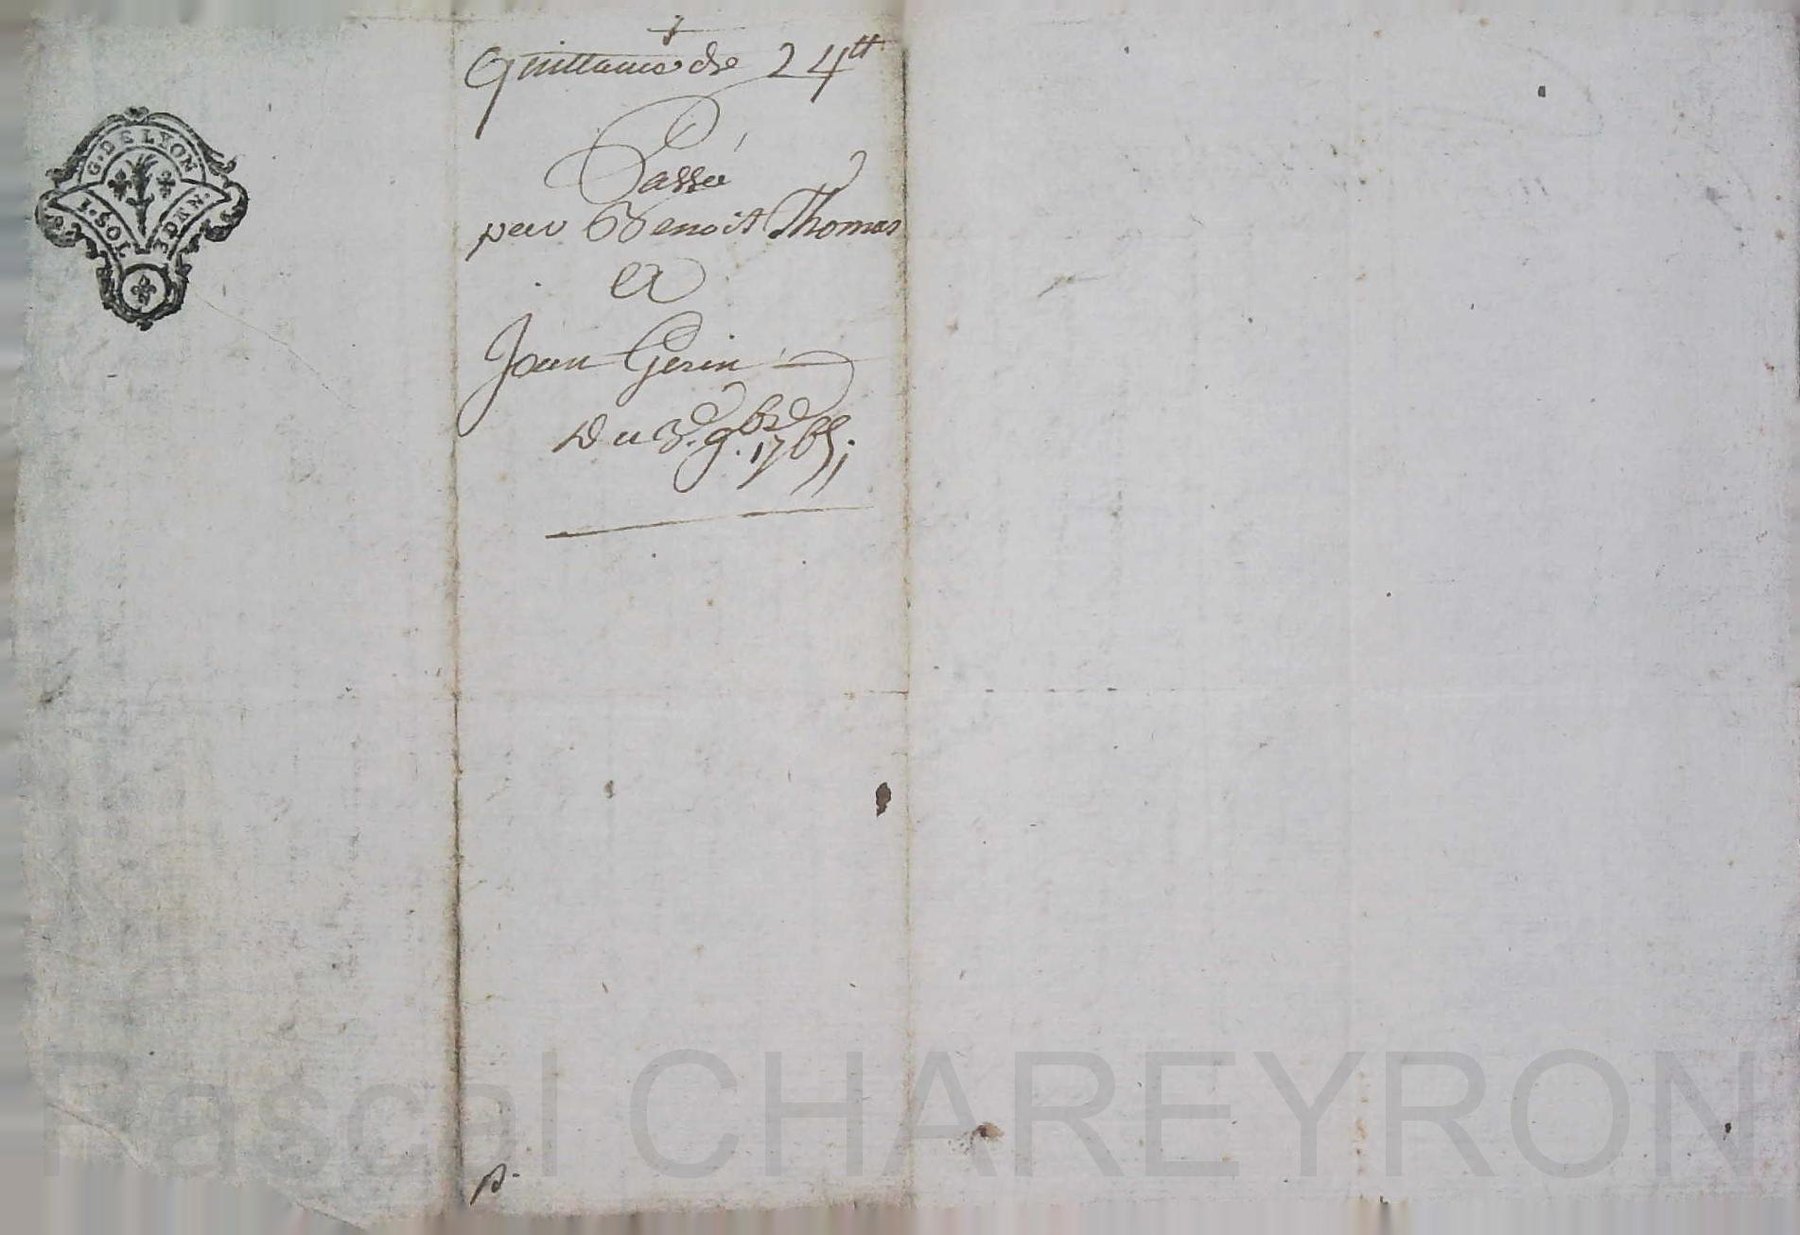 G. DE LYON
1. SOL. 3 DEN.
Quittance de 24tt
Passé
par Benoit Thomas
et
Jean Gerin
Du 3e 9bre 1765
Pascal CHAREYRON